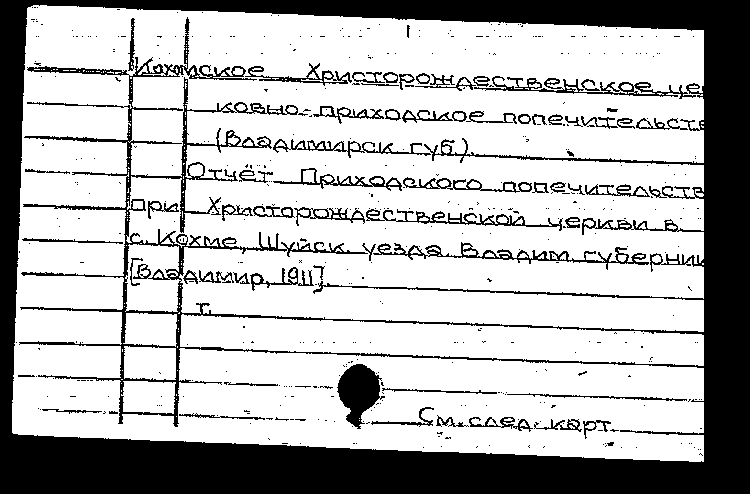 Кохомское Христорождественское цер
ковно-приходское попечительств
(Владимирск. губ.).
Отчёт Приходского попечительств
при Христорождественской церкви в
с. Кохме, Шуйск. уезда Владим. губернии
[Владимир, 1911].
т.
См. след. карт.